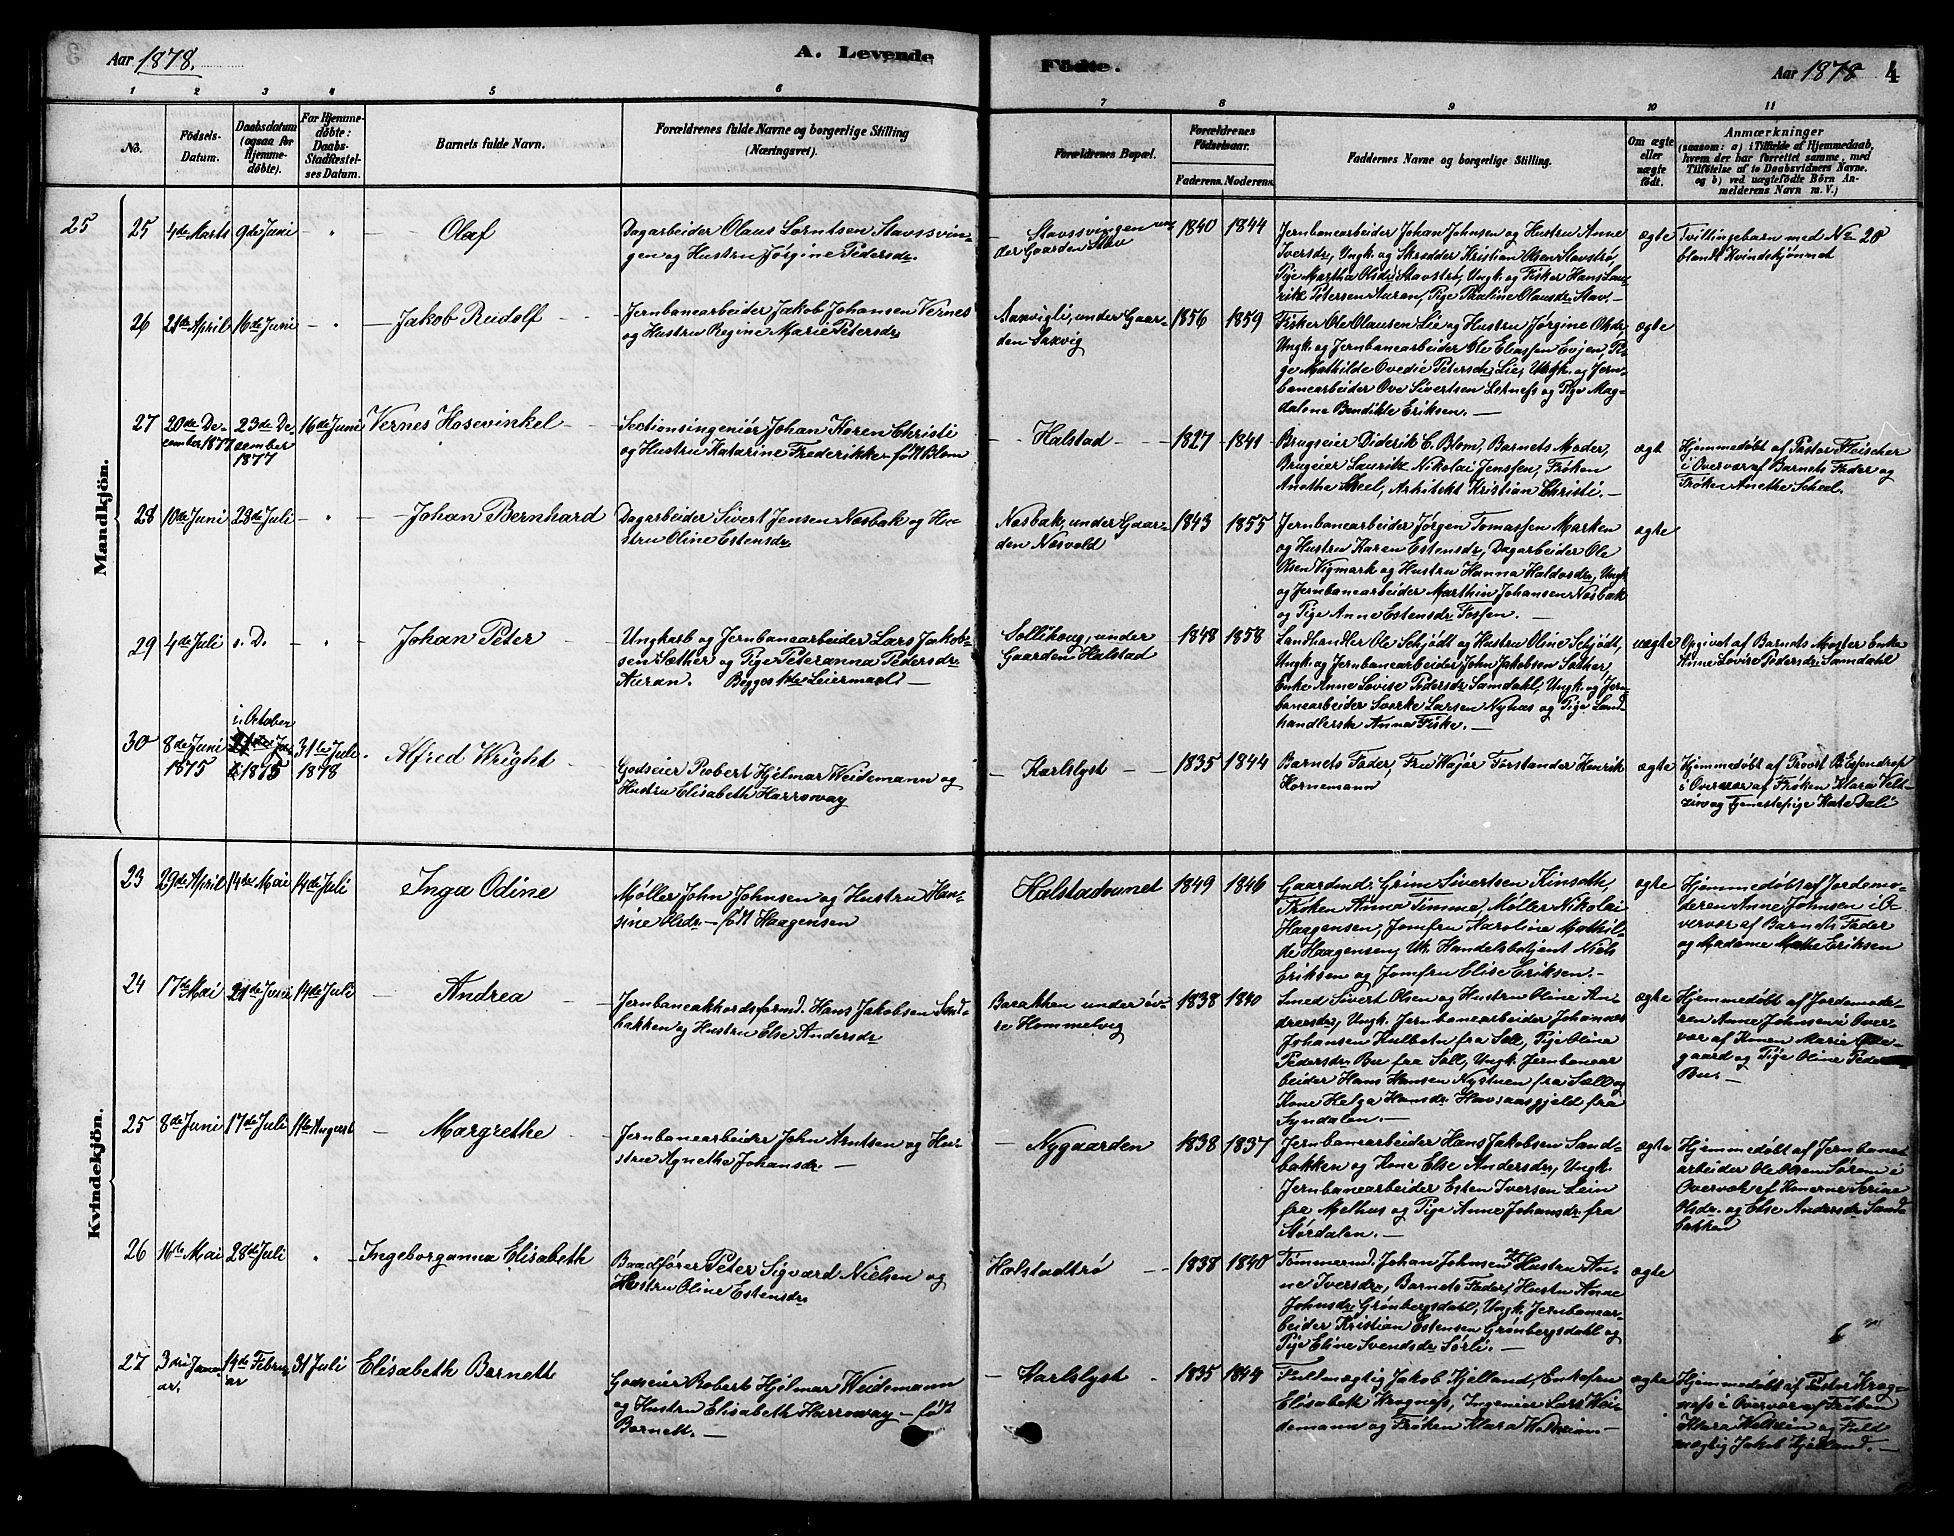 Aar 1878.
A. Levende
Fødte.
Aar 1878
4
1 2 3 4 5 6 7 8 9 10 11
No.
Fødsels-
Datum.
Daabsdatum
(ogsaa for
Hjemme-
døbte).
For Hjemme-
døbte:
Daabs-
Stadfæstel-
ses Datum.
Barnets fulde Navn.
Forældrenes fulde Navne og borgerlige Stilling
(Næringsvei).
Forældrenes Bopæl.
Forældrenes
Fødselsaar.
Faderens. Moderens.
Faddernes Navne og borgerlige Stilling.
Om ægte
eller
uægte
født.
Anmærkninger
(saasom: a) i Tilfælde af Hjemmedaab,
hvem der har forrettet samme, med
Tilføielse af to Daabsvidners Navne,
og b) ved uægtefødte Børn An-
melderens Navn m. V.)
Mandkjön.
25
25 4de Marts 9de Juni
Olaf
Dagarbeider Olaus Lorntsen Stavssvin-
gen og Hustru Jørgine Pedersdr.
Stavssvingen un-
der Gaarden Stav
1840 1844
Jernbanearbeider Johan Johnsen og Hustru Anne
Iversdr, Ungk. og Skrædder Kristian Olsen Stavstrø,
Pige Martha Olsdr Stavstrø, Ungk. og Fisker Hans Lau-
ritz Petersen Auran, Pige Pauline Olausdr Stav.
ægte
Tvillingebarn med No 28
blandt Kvindekjønnet
26 28de April 16de Juni
Jakob Rudolf
Jernbanearbeider Jakob Johansen Vernes
og Hustru Regine Marie Petersdr
Saxvigli, under Gaar-
den Saxvig
1856 1859
Fisker Ole Olausen Lie og Hustru Jørgine Olsdr,
Ungk. og Jernbanearbeider Ole Eliassen Evjen, Pi-
ge Mathilde Ovedie Petersdr Lie, Ungk. og Jern-
banearbeider Ove Sivertsen Lerness og Pige Mag-
dalene Bendikte Eriksen.
ægte
27 20de De-
cember 1877
23de De
cember
1877
16de Juni
Vernes Hosevinkel
Sectionsingeniør Johan Koren Christi
og Hustru Katarine Frederikke født Blom
Halstad
1827 1841
Brugseier Diderik C. Blom, Barnets Moder,
Brugeier Lauritz Nikolai Jenssen, Frøken
Anethe Scheel, Arkitekt Kristian Christi.
ægt
Hjemmedøbt af Pastor Fleischer
i Overvær af Barnets Fader og
Frøken Anethe Scheel.
28 10de Juni 28de Juli
Johan Bernhard
Dagarbeider Sivert Jensen Næsbak og Hu-
stru Oline Estensdr
Næsbak, under Gaar-
den Næsvold
1843 1855
Jernbanearbeider Jørgen Tomassen Marken
og Hustru Karen Estensdr, Dagarbeider Ole
Olsen Vigmark og Hustru Hanna Haldosdr, Ungk
og Jernbanearbeider Marthin Johansen Næsbak
og Pige Anne Estensdr Fossen.
ægte
29 4de Juli s. D.
Johan Peter
Ungkarl og Jernbanearbeider Lars Jakob-
sen Sæther og Pige Peteranna Pedersdr.
Auran. Begges 1ste Leiermaal.
Sollihoug, under
Gaarden Halstad
1848 1858
Landhandler Ole Schjødt og Hustru Oline Schjødt,
Ungk. og Jernbanearbeider John Jakobsen Sæther,
Enke Anne Lovise Pedersdr Samdahl, Ungk. og Jern-
banearbeider Sverke Larsen Nyhus og Pige Land-
handlerske Anna Fiske.
uægte
Opgivet af Barnets Moster Enke
Anne Lovise Pedersdr Samdahl
30 8de Juni
1875
i October
1875
31te Juli
1878
Alfred Wright
Godseier Robert Hjelmar Weidemann og
Hustru Elisabeth Harroway
Karlslyst
1835 1844
Barnets Fader, Fru Major Forstander Henrik
Hornemann
ægte
Hjemmedøbt af Provst B. Esendrop
i Overvær af Frøken Klara Velt-
zin og Tjenestepige Kate Dali
Kvindekjön.
23 29de April 14de Mai 14de Juli
Inga Odine
Møller John Johnsen og Hustru Han-
sine Olsdr - født Haagensen
Halstadvunet
1849 1846
Gaardmd. Grim Sivertsen Kinseth,
Frøken Anna Timme, Møller Nikolai
Haagensen, Jomfru Karoline Mathil-
de Haagensen, Uk. Handelsbetjent Niels
Eriksen og Jomfru Elise Eriksen.
ægte
Hjemmedøbt af Jordemo-
deren Anne Johnsen i O-
vervær af Barnets Fader
og Madame Eriksen
24 17de Mai 21de Juni 14de Juli
Andrea
Jernbaneakkordsformd. Hans Jakobsen Sand-
bakken og Hustru Else Andersdr
Barakken under øv-
re Hommelvig
1838 1840
Smed Sivert Olsen og Hustru Oline An-
dreasdr, Ungk. Jernbanearbeider Johannes
Johansen Kulbeten fra Sæll, Pige Olina
Pedersdr Bu fra Sæll, Ungk. Jernbanear-
beider Hans Hansen Nystuen fra Sæll og
Kone Helga Hansdr Havsaasgjeld fra
Syndalen.
ægte
Hjemmedøbt af Jordemode-
ren Anne Johnsen i Over-
vær af Konen Marie
gaard og Pige Oline Peders
Bu.
25 8de Juni 17de Juli 11te August
Margrethe
Jernbanearbeider John Arntsen og Hu-
stru Agnethe Johansdr.
Nygaarden
1838 1837
Jernbanearbeider Hans Jakobsen Sand-
bakken og Kone Else Andersdr, Ungk.
Jernbanearbeider Esten Iversen Lein
fra Melhus og Pige Anne Johansdr fra
Størdalen.
ægte
Hjemmedøbt af Jernbane-
arbeider Ole Olsen Sørem i
Overvær af Konerne Serine
Olsdr. og Else Andersdr Sand-
bakken
26 16de Mai 28de Juli
Ingeborganna Elisabeth
Baadfører Peter Sigvard Nielsen og
Hustru Oline Estensdr
Halstadtrø
1838 1840
Tømmermd. Johan Johnsen og Hustru An-
ne Iversdr, Barnets Fader, Hustru Anne
Johnsdr Grønbergsdahl, Ungk. Jernbanear-
beider Kristian Estensen Grønbergsdahl og
Pige Eline Svendsdr Sørli.
ægte
27 3die Janu-
ar.
14de Febru-
ar
31 Juli
Elisabeth Barnett
Godseier Robert Hjelmar Weidemann
og Hustru Elisabeth Harroway - født
Barnett.
Karlslyst
1835 1844
Fuldmægtig Jakob Kjelland, Enkefru
Elisabeth Krogness, Ingeniør Lars Wei-
demann og Frøken Klara Weltzien
ægte
Hjemmedøbt af Pastor Krog-
ness i Overvær af Frøken
Klara Weltzien og Fuld
mægtig Jakob Kjelland.